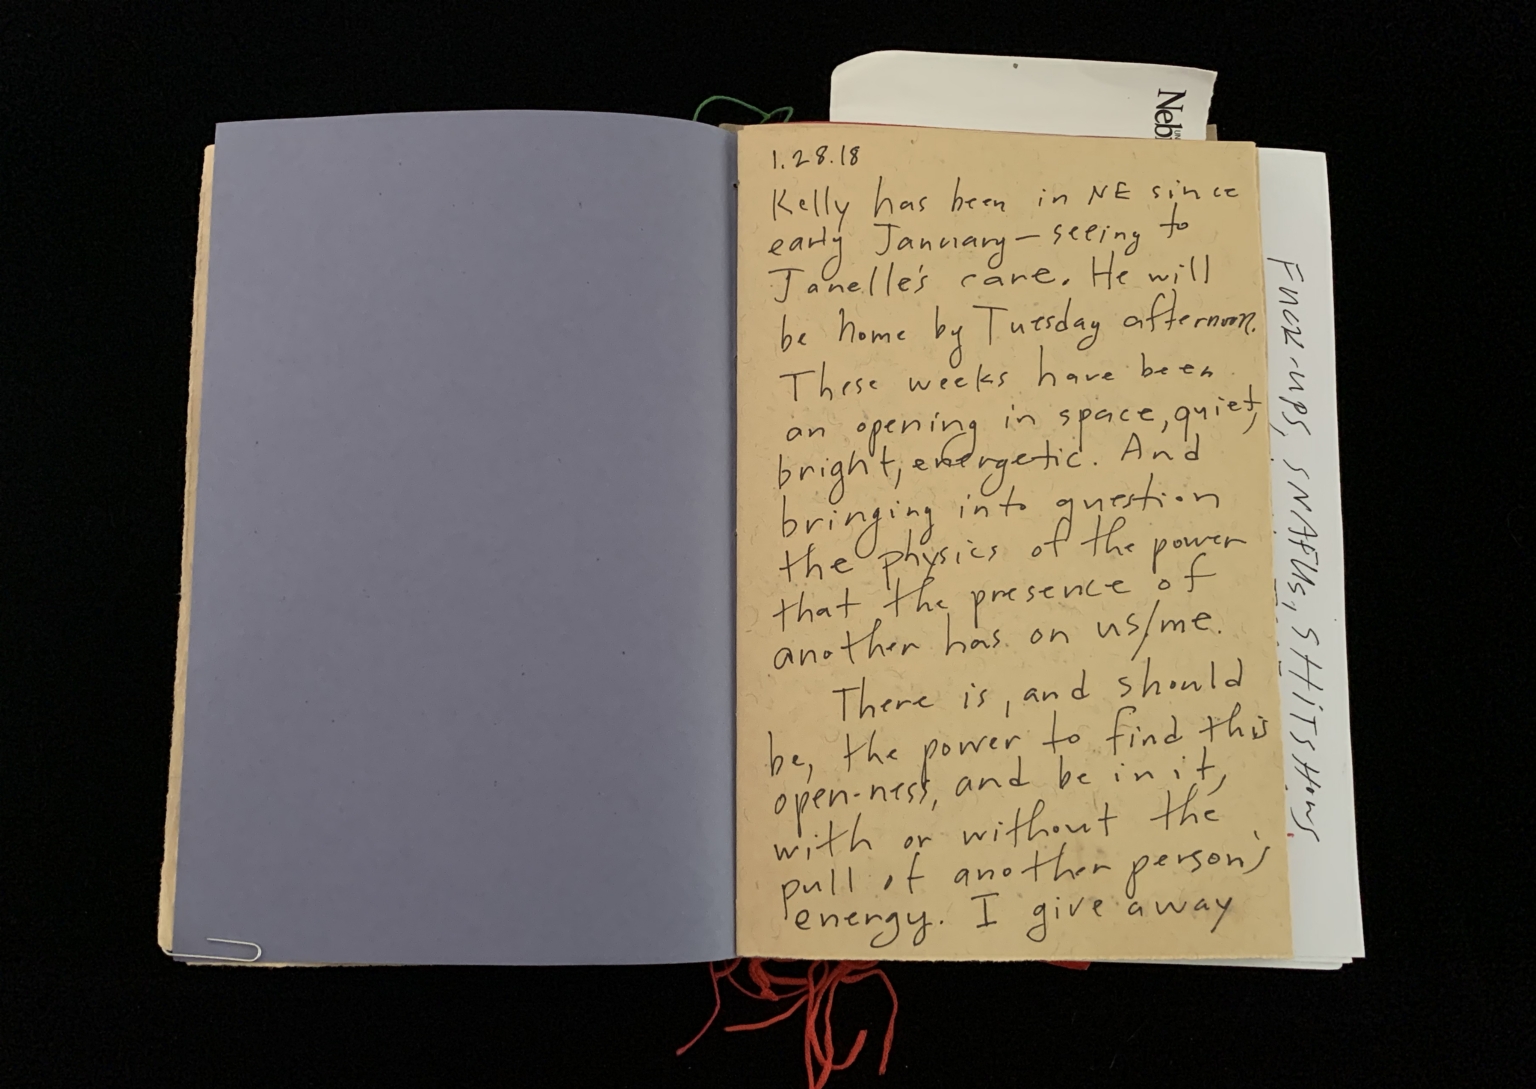 1.28.18
Kelly has been in NE since
early January — seeing to
Janelle's care. He will
be home by Tuesday afternoon.
These weeks have been
an opening in space, quiet,
bright, energetic. And
bringing into question
the physics of the power
that the presence of
another has on us/me.
There is, and should
be, the power to find this
open-ness, and be in it,
with or without the
pull of another person's
energy. I give away
Neb
UN
Fuck-ups, SNAFUs, SHiTSHows